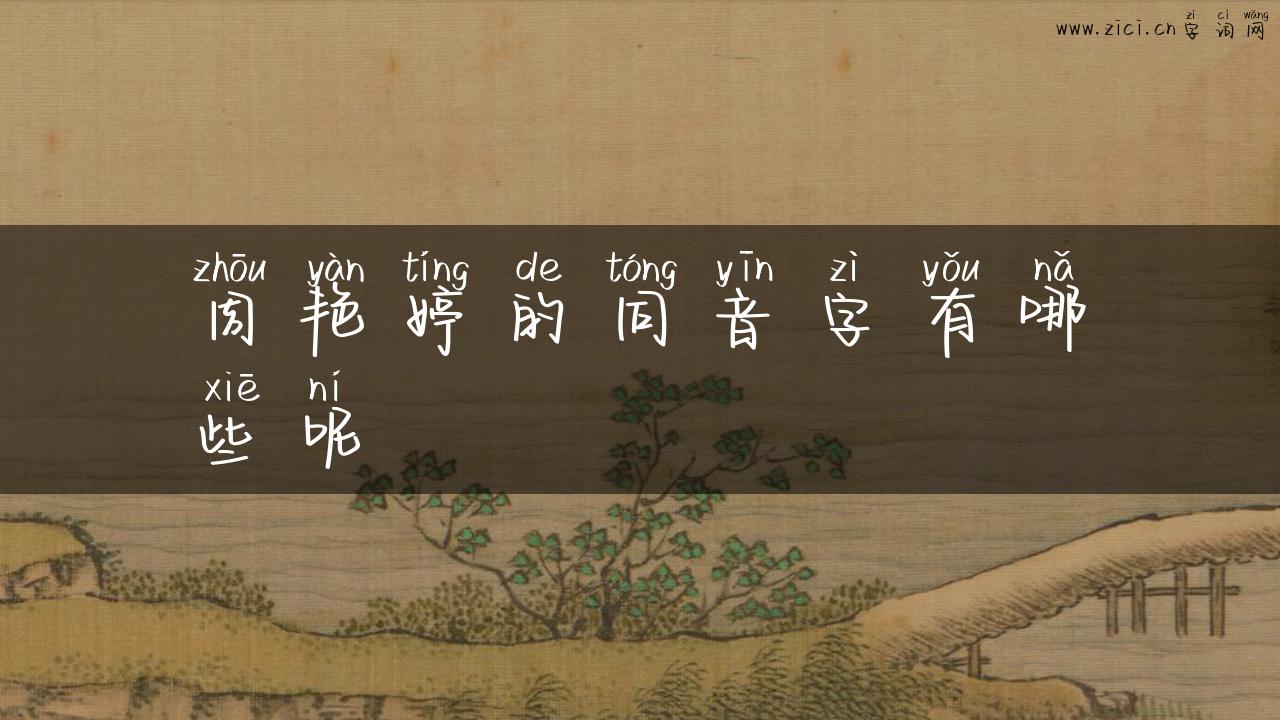 zì cí wǎng
www.zici.cn 字词网
zhōu yàn tíng de tóng yīn zì yǒu nǎ
周艳婷的同音字有哪
xiē ní
些呢